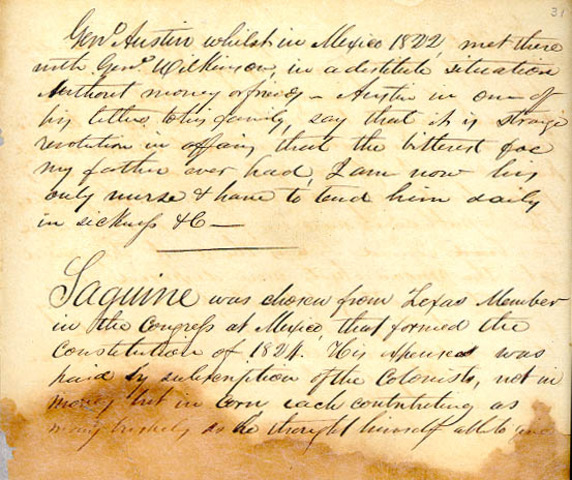 31
Genl. Austin whilst in Mexico 1822, met there
with Genl. Wilkinson, in a destitute situation
Without money or friends – Austin in one of
his letters to his family, say that it is strange
revolution in affairs, that the bitterest foe
my father ever had, I am now his
only nurse & have to tend him daily
in sickness &C —
Saguine was chosen from Texas Member
in the Congress at Mexico, that formed the
Constitution of 1824. His expenses was
paid by subscription of the Colonists, not in
money but in Corn each contributing as
many bushels as he thought himself able to give